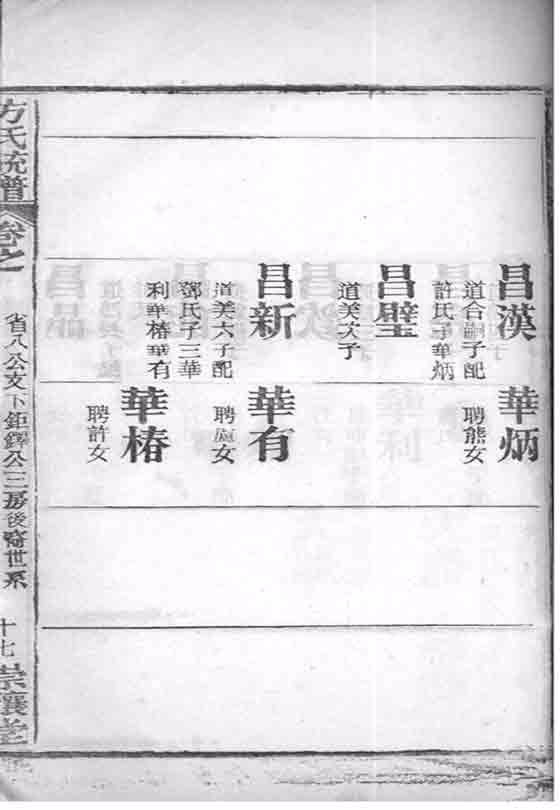 昌漢
道合嗣子配
許氏子華炳
昌璧
道美次子
昌新
道美六子配
鄧氏子三華
利華椿華有
華炳
聘熊女
華有
聘盧女
華椿
聘許女
方氏統譜
卷之一
省八公支下鉅鐸公三房後裔世系
十七
崇讓堂